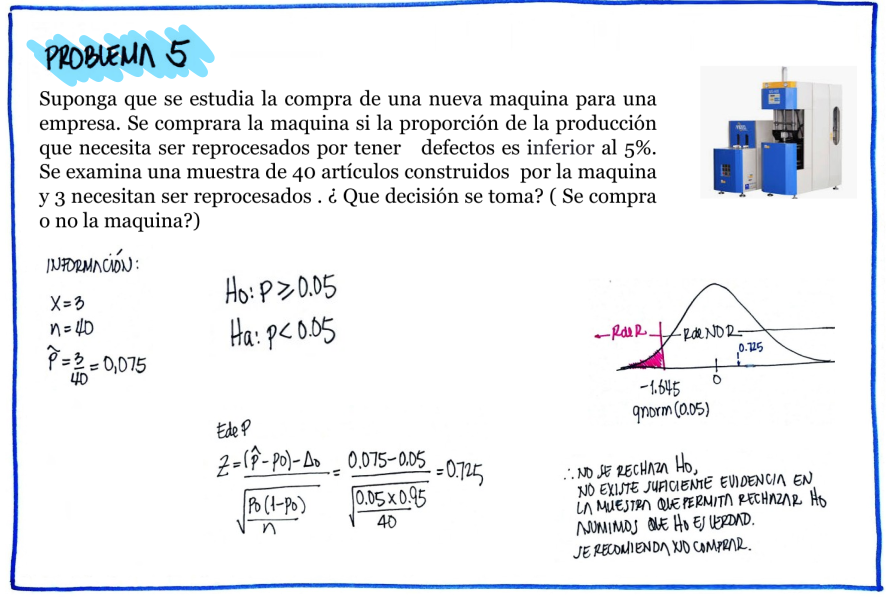 PROBLEMA 5
Suponga que se estudia la compra de una nueva maquina para una
empresa. Se comprara la maquina si la proporción de la producción
que necesita ser reprocesados por tener defectos es inferior al 5%.
Se examina una muestra de 40 artículos construidos por la maquina
y 3 necesitan ser reprocesados . ¿ Que decisión se toma? ( Se compra
o no la maquina?)
INFORMACIÓN:
X=3
n=40
p̂=3/40=0,075
Ho: P≥0.05
Ha: p<0.05
Ede P
Z=(p̂-po)-Δo/√(Po(1-Po)/n) = 0.075-0.05/√(0.05x0.95/40) =0.725
RdeR
RdeNOR
0.725
-1.645
0
qnorm(0.05)
∴ NO SE RECHAZA Ho,
NO EXISTE SUFICIENTE EVIDENCIA EN
LA MUESTRA QUE PERMITA RECHAZAR Ho
ASUMIMOS QUE Ho ES VERDAD.
SE RECOMIENDA NO COMPRAR.